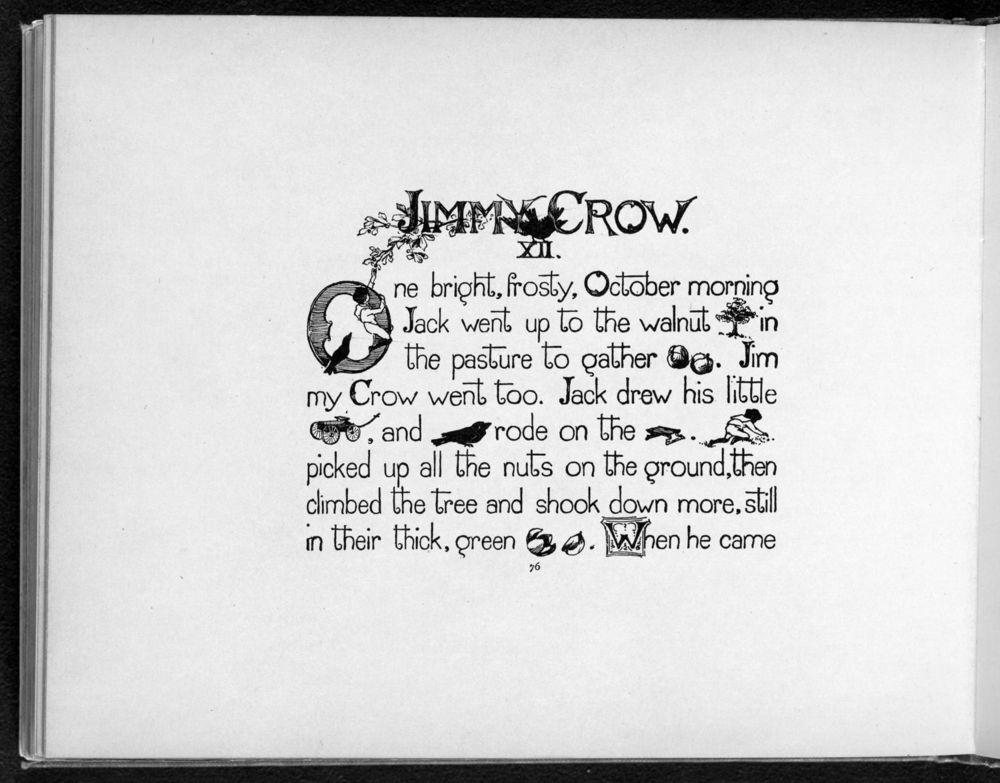 JIMMY CROW.
XII.
One bright, frosty, October morning
Jack went up to the walnut in
the pasture to gather . Jim
my Crow went too. Jack drew his little
, and rode on the .
picked up all the nuts on the ground, then
climbed the tree and shook down more, still
in their thick, green . When he came
76